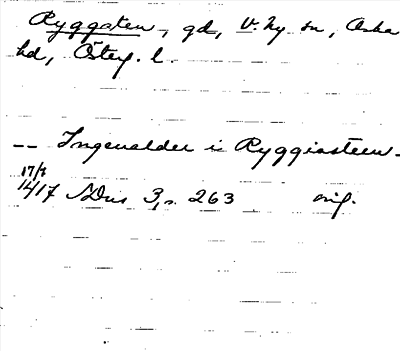 Ryggaten, gd, V. Ny sn, Aska
hd, Österg. l.
-- Ingeualder i Ryggiasteen -
17/7
1417 SDns 3, s. 263 orig.